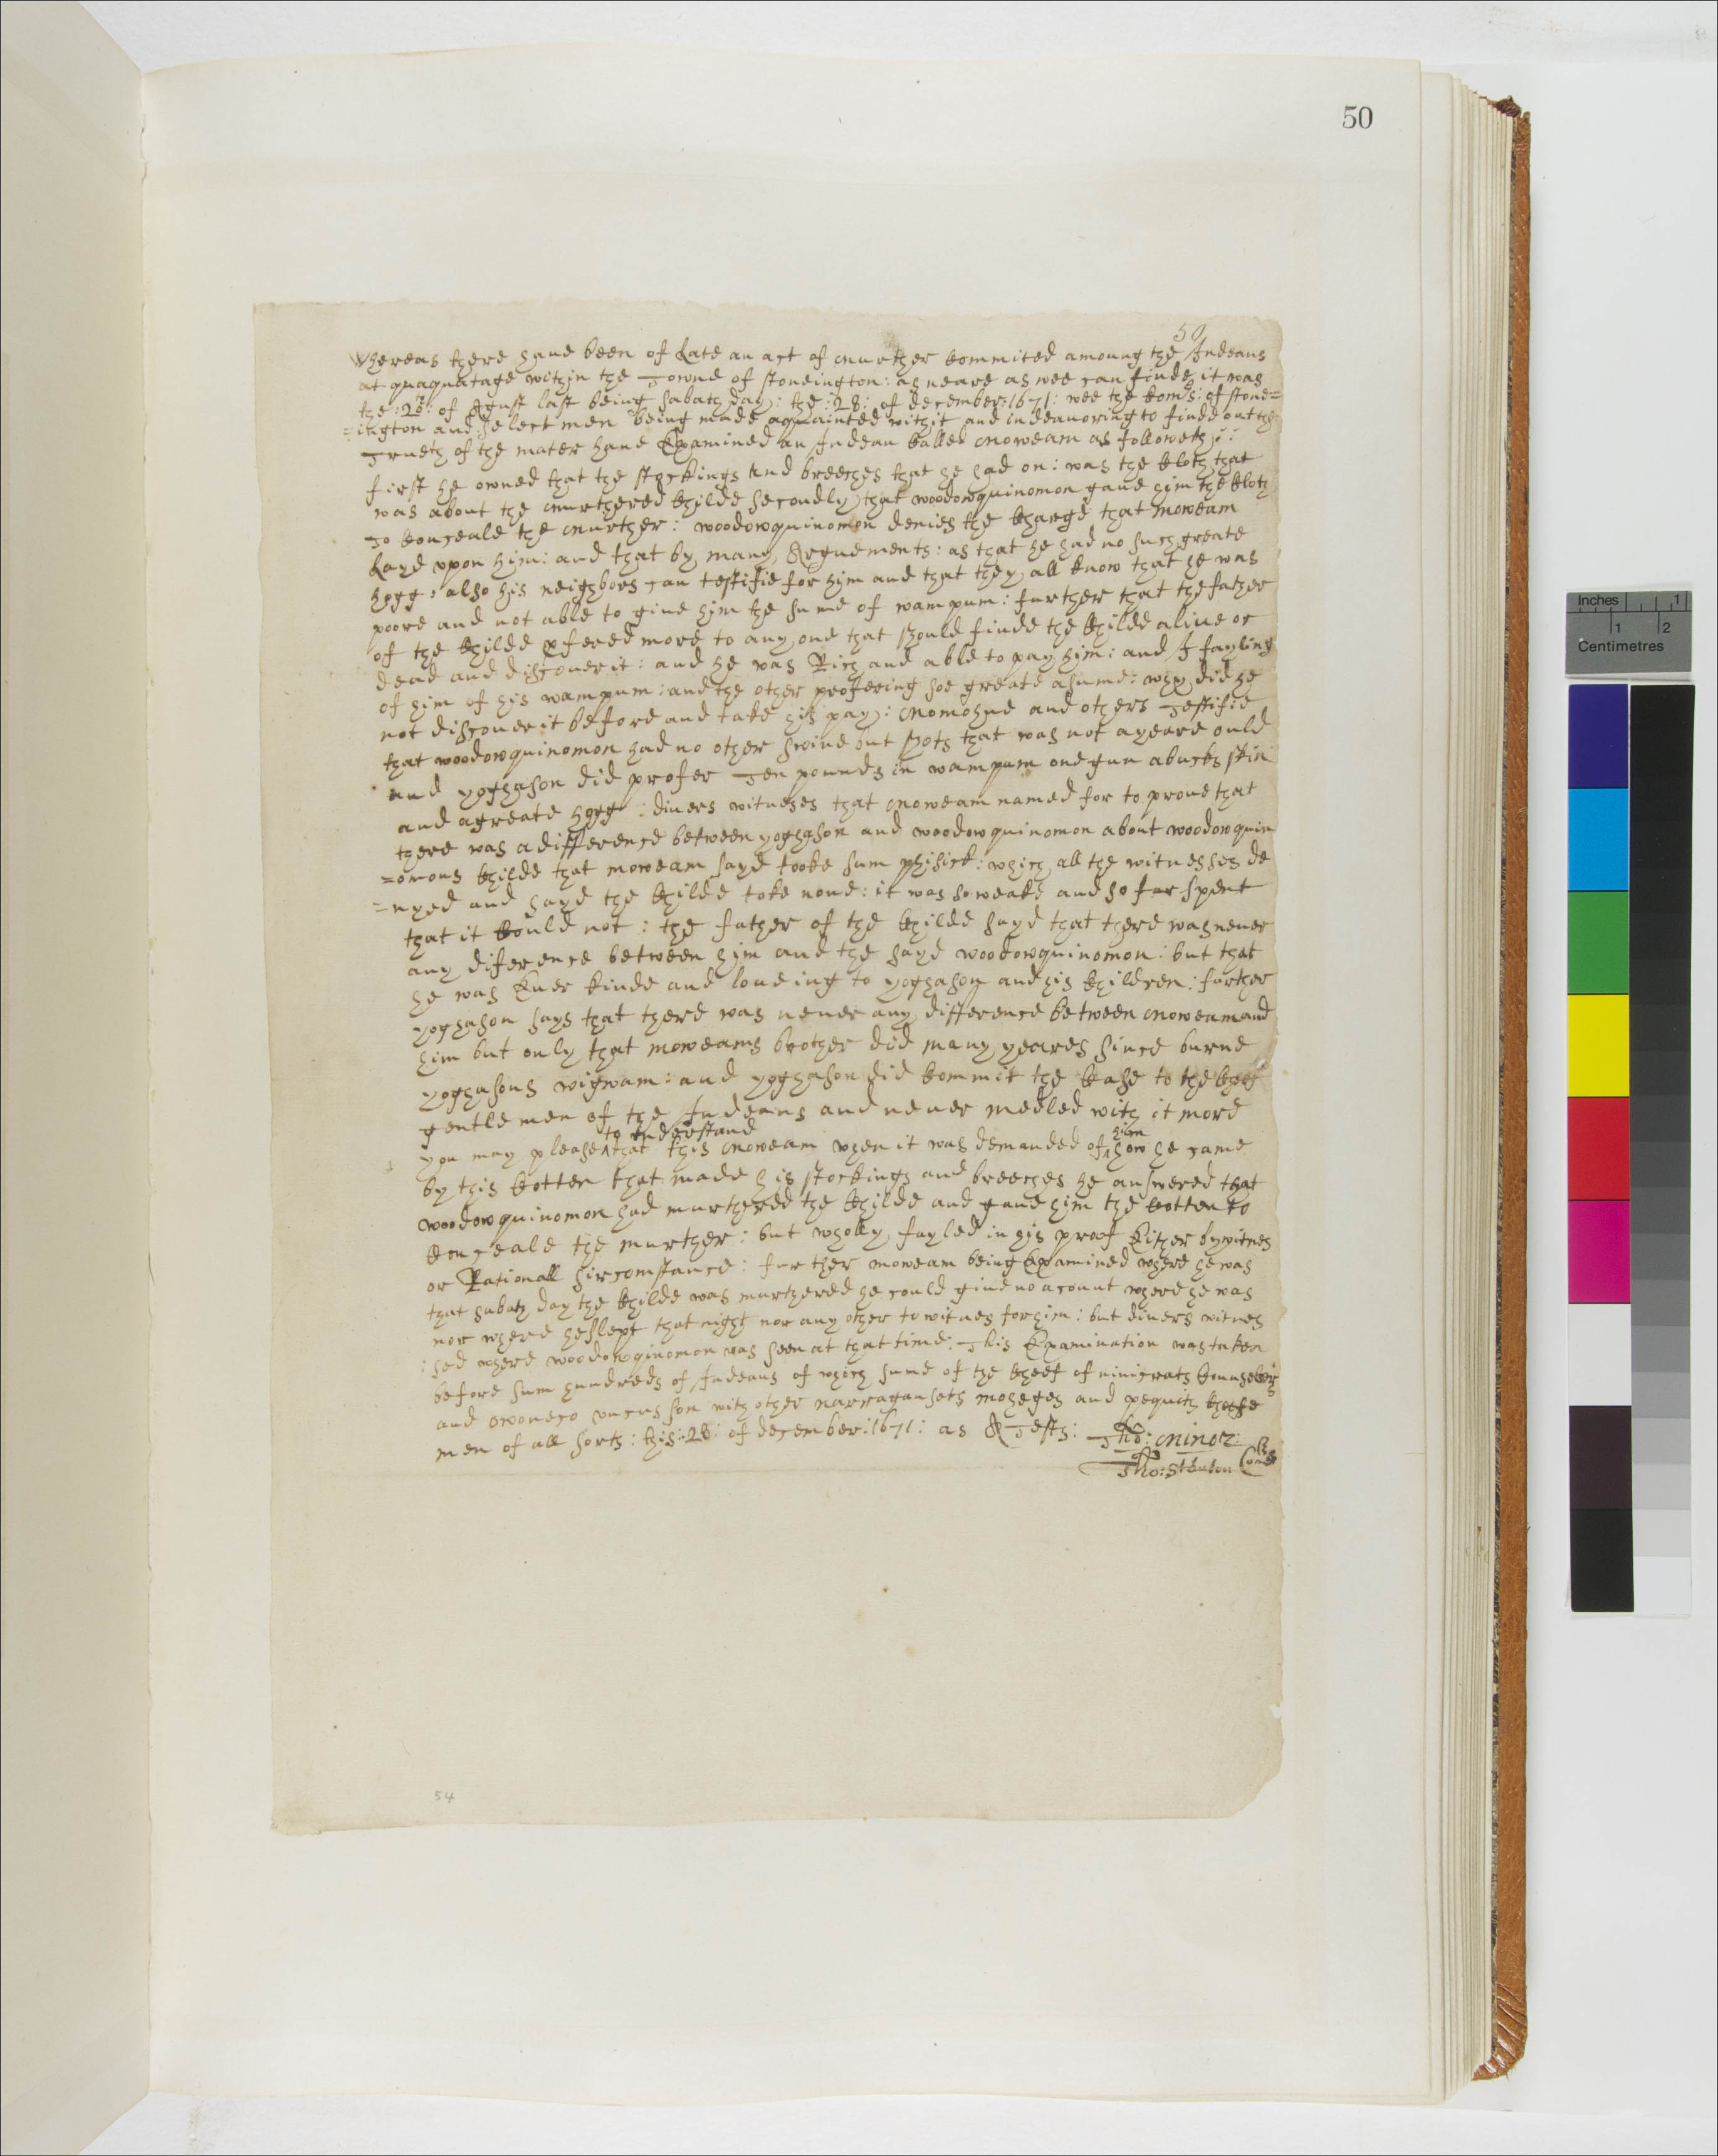 50
50
Whereas there haue been of Late an act of murther kommited amoung the Indeans
at quaquatage within the Towne of stoneington: as neare as wee can finde it was
the: 28: of Agust last being sabath day: the: 28: of december: 1671: wee the kom^rs: of stone=
=ington and select men being made aquainted with it and indeauoring to finde out the
Trueth of the mater haue Examined an Indean kalled moweam as followeth
first he owned that the stockings And breeches that he had on: was the kloth that
was about the murthered Childe secondly that woodowquinomon gaue him the kloth
To konceale the murther: woodowquinomon denies the Charge that moweam
Layd vpon him: and that by many Arguements: as that he had no such greate
hogg: also his neighbors can testifie for him and that they all know that he was
poore and not able to giue him the sume of wampum: further that the father
of the Childe pfered more to any one that should finde the Childe aliue or
dead and discouer it: and he was Rich and able to pay him: and I fayling
of him of his wampum: and the other profering soe greate a sume: why did he
not discouer it before and take his pay: momohue and others Testifie
that woodowquinomon had no other swine but shots that was not a yeare ould
and yoghason did profer Ten pounds in wampum one gun a bucks skin
and a greate hogg: diuers witneses that moweam named for to proue that
there was a difference between yoghason and woodowquinomon about woodowquin
=omons Childe that moweam sayd tooke sum phisick: which all the witnesses de
=nyed and sayd the Childe toke none: it was so weake and so far spent
that it kould not: the father of the Childe sayd that there was neuer
any diference between him and the sayd woodowquinomon: but that
he was Euer kinde and loueing to yoghason and his Children: further
yoghason says that there was neuer any difference between moweam and
him but only that moweams brother did many yeares since burne
yoghasons wigwam: and yoghason did kommit the kase to the Cheef
gentlemen of the Indeans and neuer medled with it more
to understand him
you may please ^ that this moweam when it was demanded of ^ how he came
by this kotten that made his stockings and breeches he answered that
woodowquinomon had murthered the Childe and gaue him the kotten to
konceale the murther: but wholly fayled in his proof Either by witnes
or Rationall sircomstance: further moweam being Examined where he was
that sabath day the Childe was murthered he could giue no acount where he was
nor where he slept that night nor any other to witnes for him: but diuers witnes
:sed where woodowqinomon was seen at that time: This Examination was taken
before sum hundreds of Indeans of which sume of the Cheef of ninicrats kounselors
and owoneco vncus son with other narragansets moheges and pequits Cheefe
men of all sorts: this: 28: of december: 1671: as ATests: Tho: Minor:
Tho: Stanton Com^rs
54
Inches 1
1 2
Centimetres